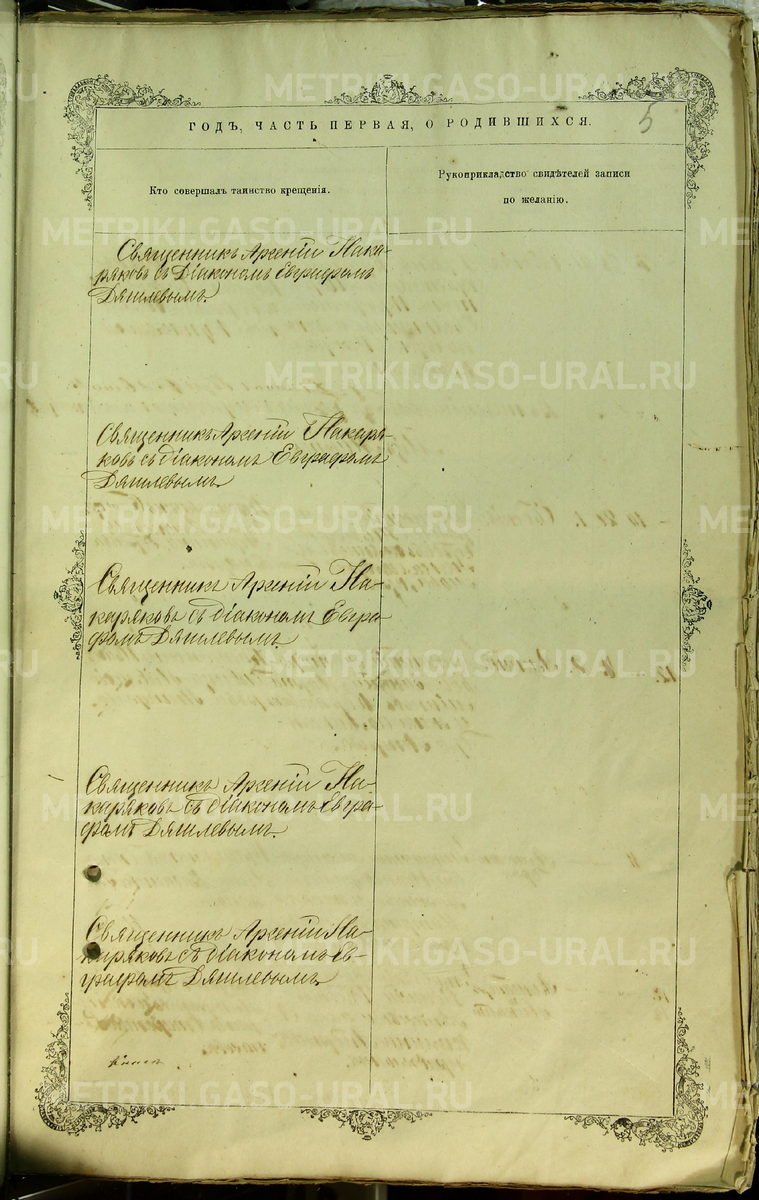 ГОДЪ, ЧАСТЬ ПЕРВАЯ, О РОДИВШИХСЯ.
5
Кто совершалъ таинство крещенія.
Рукоприкладство свидѣтелей записи
по желанію.
Священникъ Арсеній Нака-
ряковъ съ Діакономъ Евграфомъ
Дягилевымъ.
Священникъ Арсеній Накаря-
ковъ съ діакономъ Евграфомъ
Дягилевымъ.
Священникъ Арсеній На-
каряковъ съ діакономъ Евгра-
фомъ Дягилевымъ.
Священникъ Арсеній На-
каряковъ съ діакономъ Евгра-
фомъ Дягилевымъ.
Священникъ Арсеній На-
каряковъ съ діакономъ Ев-
графомъ Дягилевымъ.
METRIKI.GASO-URAL.RU